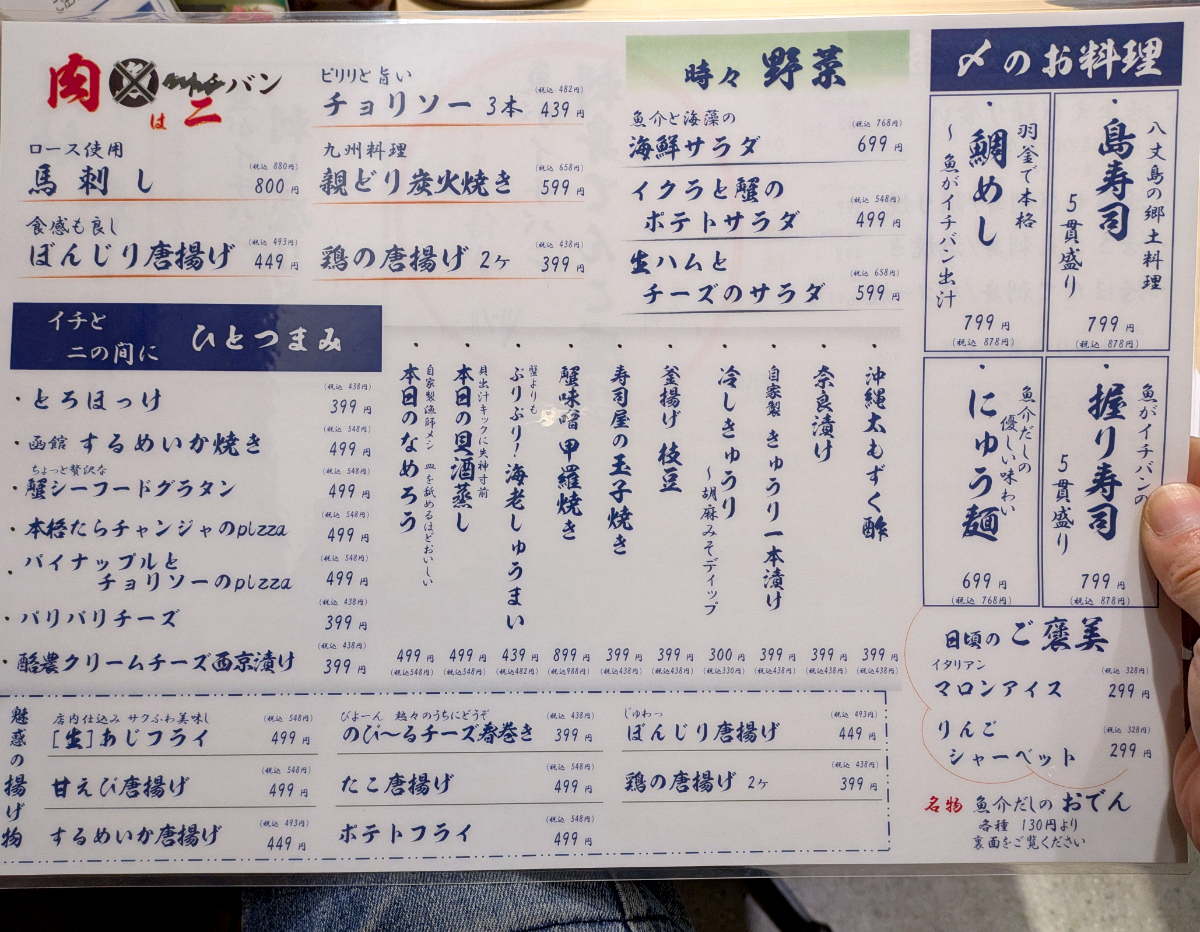 肉は イチ 二 バン
ロース使用
馬刺し (税込 880円) 800円
食感も良し
ぼんじり唐揚げ (税込 493円) 449円
ピリリと旨い
チョリソー 3本 (税込 482円) 439円
九州料理
親どり炭火焼き (税込 658円) 599円
鶏の唐揚げ 2ヶ (税込 438円) 399円
時々 野菜
魚介と海藻の
海鮮サラダ (税込 768円) 699円
イクラと蟹の
ポテトサラダ (税込 548円) 499円
生ハムと
チーズのサラダ (税込 658円) 599円
〆のお料理
八丈島の郷土料理
・島寿司
5貫盛り
799円
(税込 878円)
羽釜で本格
・鯛めし
～魚がイチバン出汁
799円
(税込 878円)
魚がイチバンの
・握り寿司
5貫盛り
799円
(税込 878円)
魚介だしの
優しい味わい
・にゅう麺
699円
(税込 768円)
イチと
二の間に
ひとつまみ
・とろほっけ (税込 438円) 399円
・函館 するめいか焼き (税込 548円) 499円
ちょっと贅沢な
・蟹シーフードグラタン (税込 548円) 499円
・本格たらチャンジャのpizza (税込 548円) 499円
・パイナップルと
チョリソーのpizza (税込 548円) 499円
・パリパリチーズ (税込 438円) 399円
・酪農クリームチーズ西京漬け (税込 438円) 399円
・沖縄太もずく酢 399円 (税込438円)
・奈良漬け 399円 (税込438円)
・自家製 きゅうり一本漬け 399円 (税込438円)
・冷しきゅうり
～胡麻みそディップ 300円 (税込330円)
・釜揚げ 枝豆 399円 (税込438円)
・寿司屋の玉子焼き 399円 (税込438円)
・蟹味噌 甲羅焼き 899円 (税込988円)
蟹よりも
・ぷりぷり！海老しゅうまい 439円 (税込482円)
貝出汁キックに失神寸前
・本日の貝酒蒸し 499円 (税込548円)
自家製漁師メシ 皿を舐めるほどおいしい
・本日のなめろう 499円 (税込548円)
魅惑の揚げ物
店内仕込み サクふわ美味し
[生]あじフライ (税込 548円) 499円
甘えび唐揚げ (税込 548円) 499円
するめいか唐揚げ (税込 493円) 449円
びよーん 熱々のうちにどうぞ
のび～るチーズ春巻き (税込 438円) 399円
たこ唐揚げ (税込 548円) 499円
ポテトフライ (税込 548円) 499円
じゅわっ
ぼんじり唐揚げ (税込 493円) 449円
鶏の唐揚げ 2ヶ (税込 438円) 399円
日頃の ご褒美
イタリアン
マロンアイス (税込 328円) 299円
りんご
シャーベット (税込 328円) 299円
名物 魚介だしの おでん
各種 130円より
裏面をご覧ください